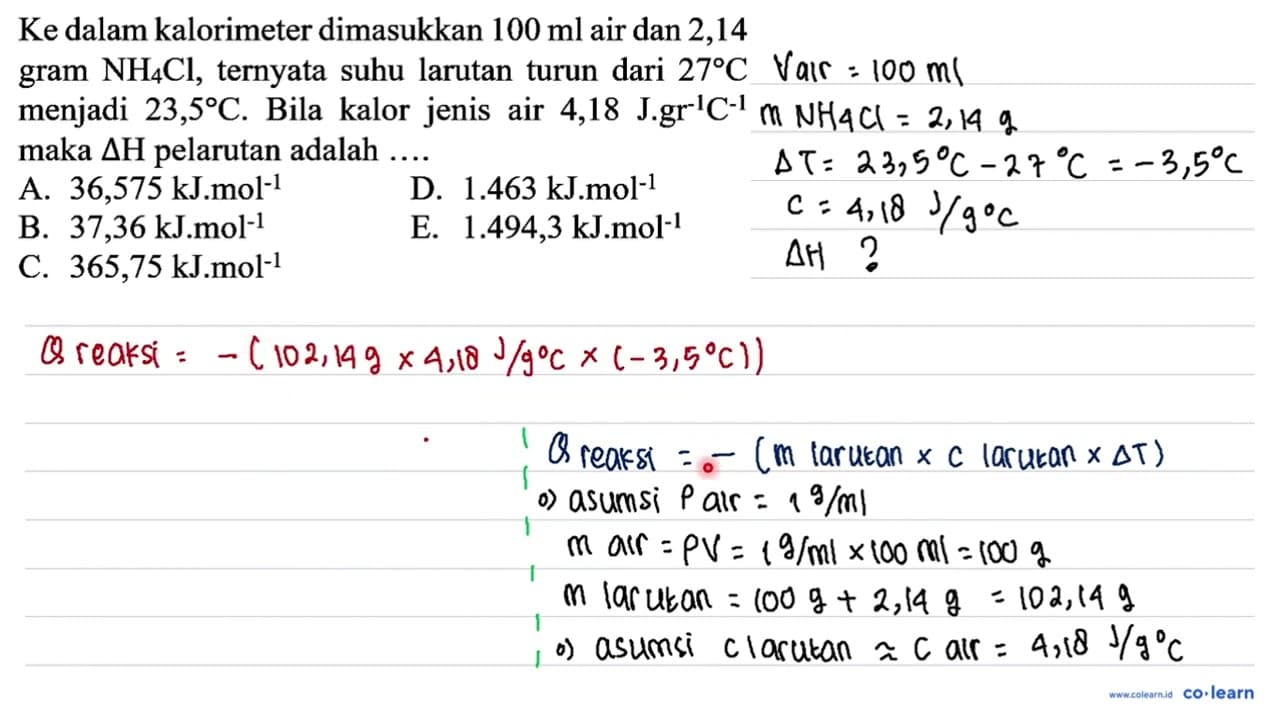 Ke dalam kalorimeter dimasukkan 100 ml air dan 2,14
gram NH₄Cl, ternyata suhu larutan turun dari 27°C
menjadi 23,5°C. Bila kalor jenis air 4,18 J.gr⁻¹C⁻¹
maka ΔH pelarutan adalah ....
A. 36,575 kJ.mol⁻¹ D. 1.463 kJ.mol⁻¹
B. 37,36 kJ.mol⁻¹ E. 1.494,3 kJ.mol⁻¹
C. 365,75 kJ.mol⁻¹
V air = 100 ml
m NH4Cl = 2,14 g
ΔT = 23,5°C - 27°C = -3,5°C
C = 4,18 J/g°C
ΔH ?
Q reaksi = - (102,14 g × 4,18 J/g°C × (-3,5°C))
Q reaksi = - (m larutan × c larutan × ΔT)
o) asumsi ρ air = 1 g/ml
m air = ρV = 1 g/ml × 100 ml = 100 g
m larutan = 100 g + 2,14 g = 102,14 g
o) asumsi c larutan ≈ c air = 4,18 J/g°C
www.colearn.id co·learn